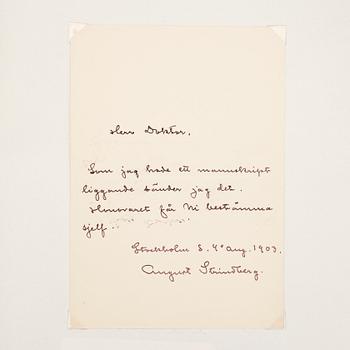 Herr Doktor,
Som jag hade ett manuskript
liggande sänder jag det.
Honoraret får Ni bestämma
sjelf.
Stockholm d. 4e Aug. 1903.
August Strindberg.